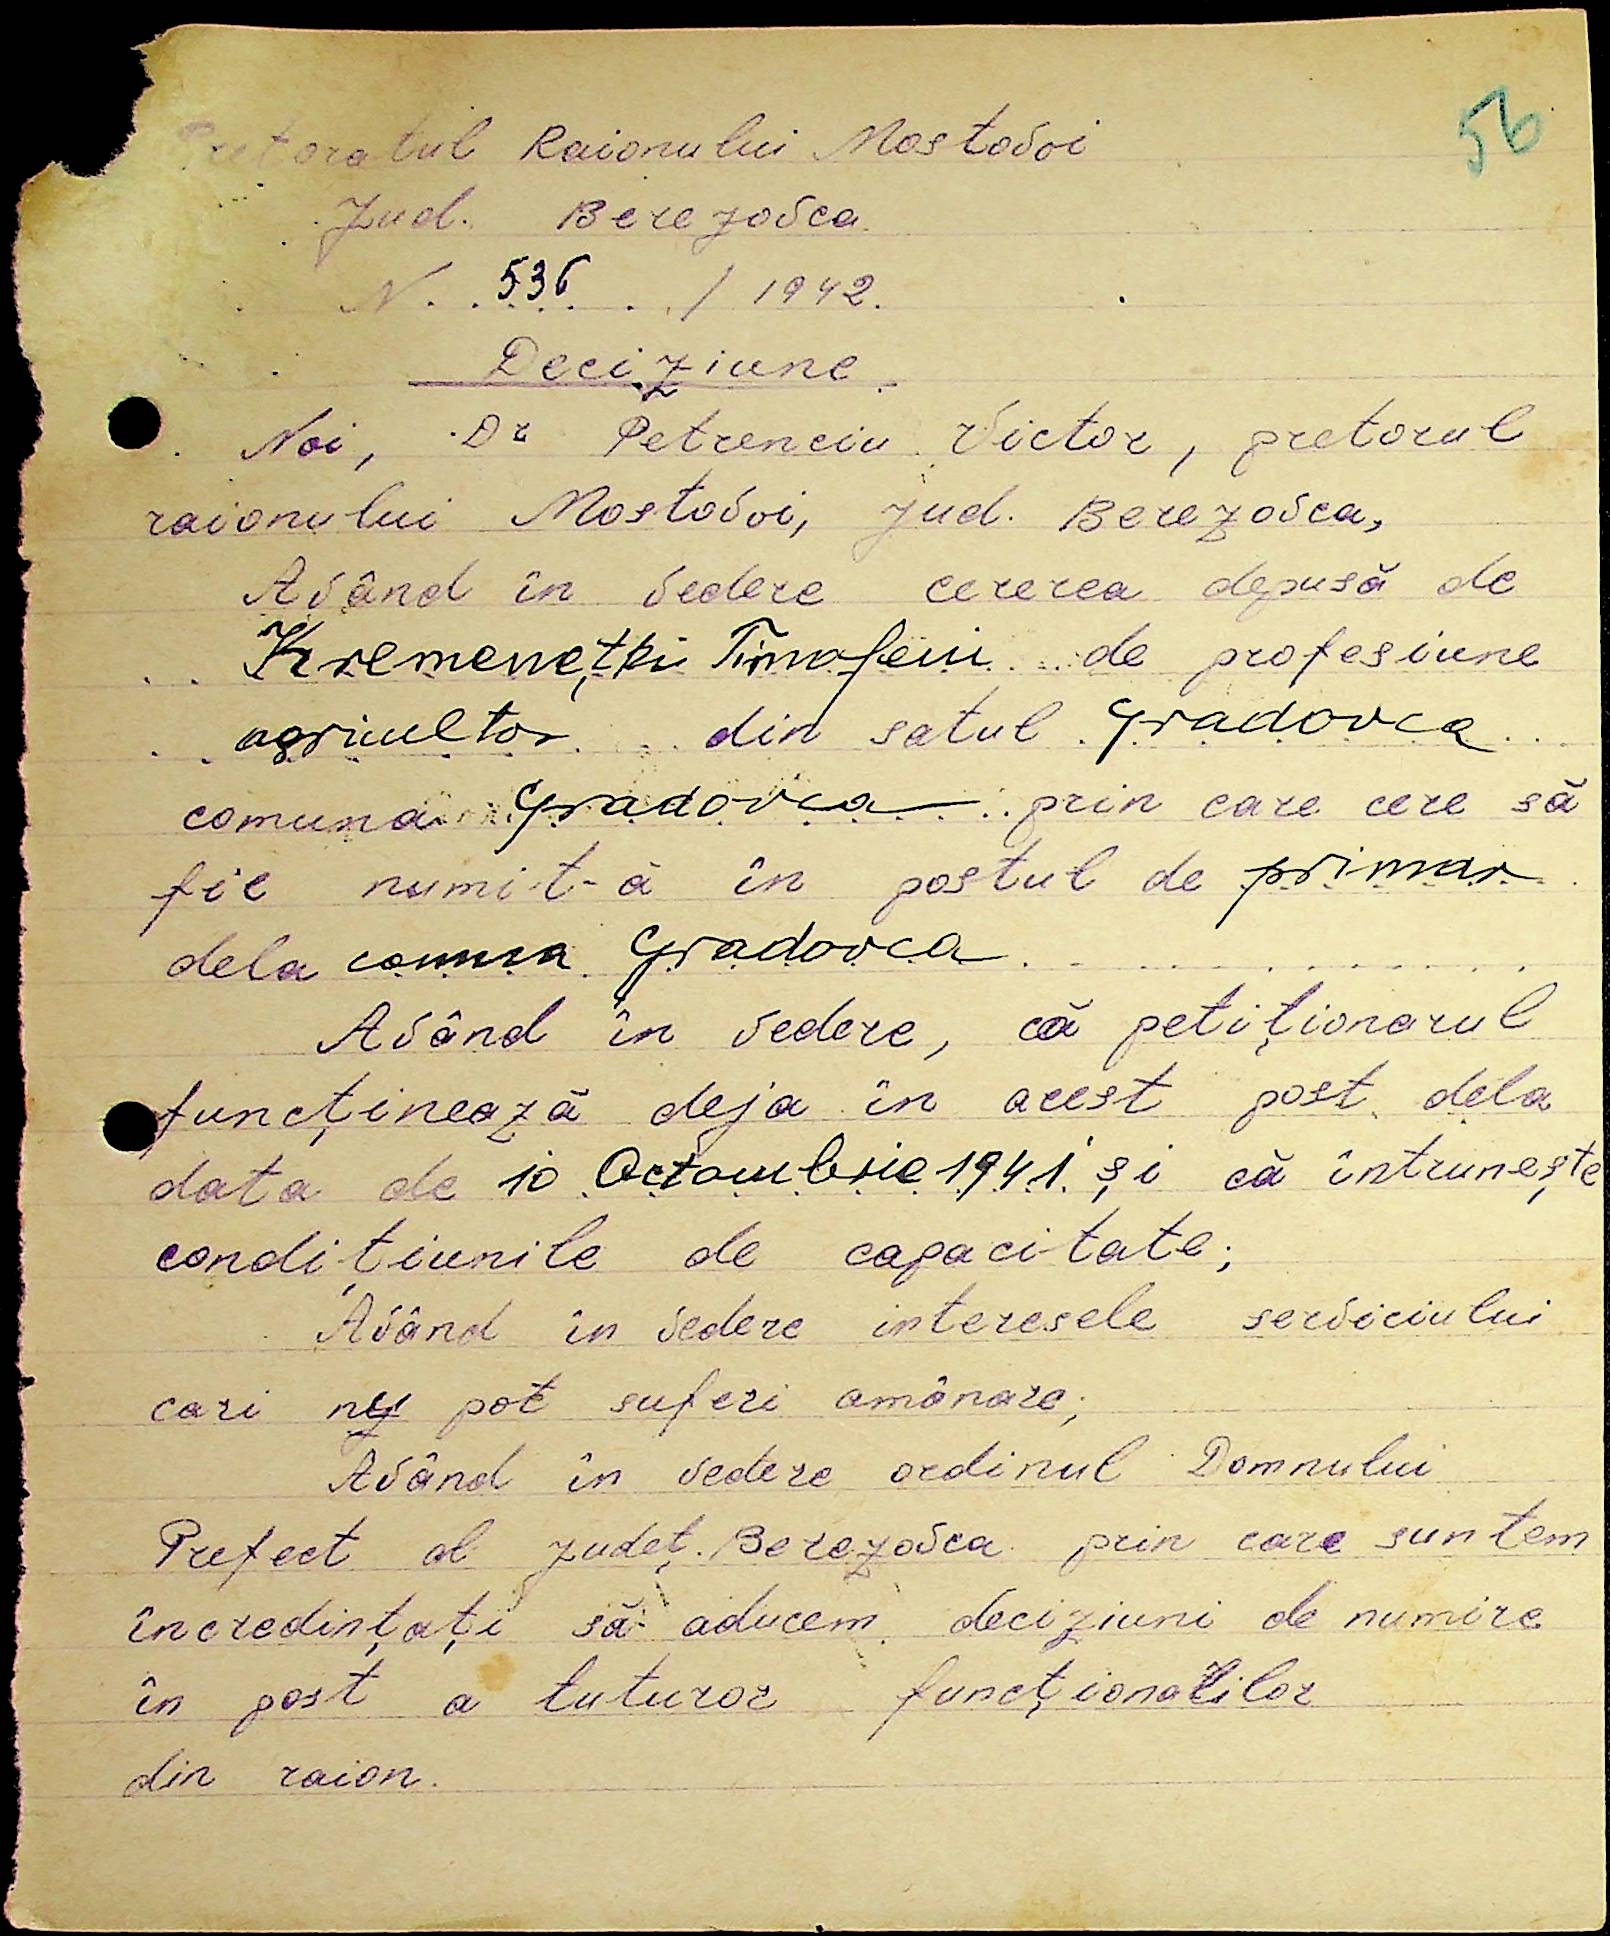 56
Pretoratul Raionului Mostovoi
Jud. Berezovca
N. . 536 . . / 1942.
Deciziune
Noi, Dr Petrenciu Victor, pretorul
raionului Mostovoi, jud. Berezovca,
Având în vedere cererea depusă de
. . Kremenețki Timofeiu . . de profesiune
. . agricultor . . . din satul Gradovca . .
comuna . . Gradovca . . prin care cere să
fie numit-ă în postul de primar
dela comuna Gradovca . . . . . . . . . .
Având în vedere, că petiționarul
funcținează deja în acest post dela
data de 10 Octombrie 1941 și că întrunește
condițiunile de capacitate;
Având în vedere interesele serviciului
cari nu pot suferi amânare;
Având în vedere ordinul Domnului
Prefect al județ. Berezovca prin care suntem
încredințați să aducem deciziuni de numire
în post a tuturor funcționarilor
din raion.